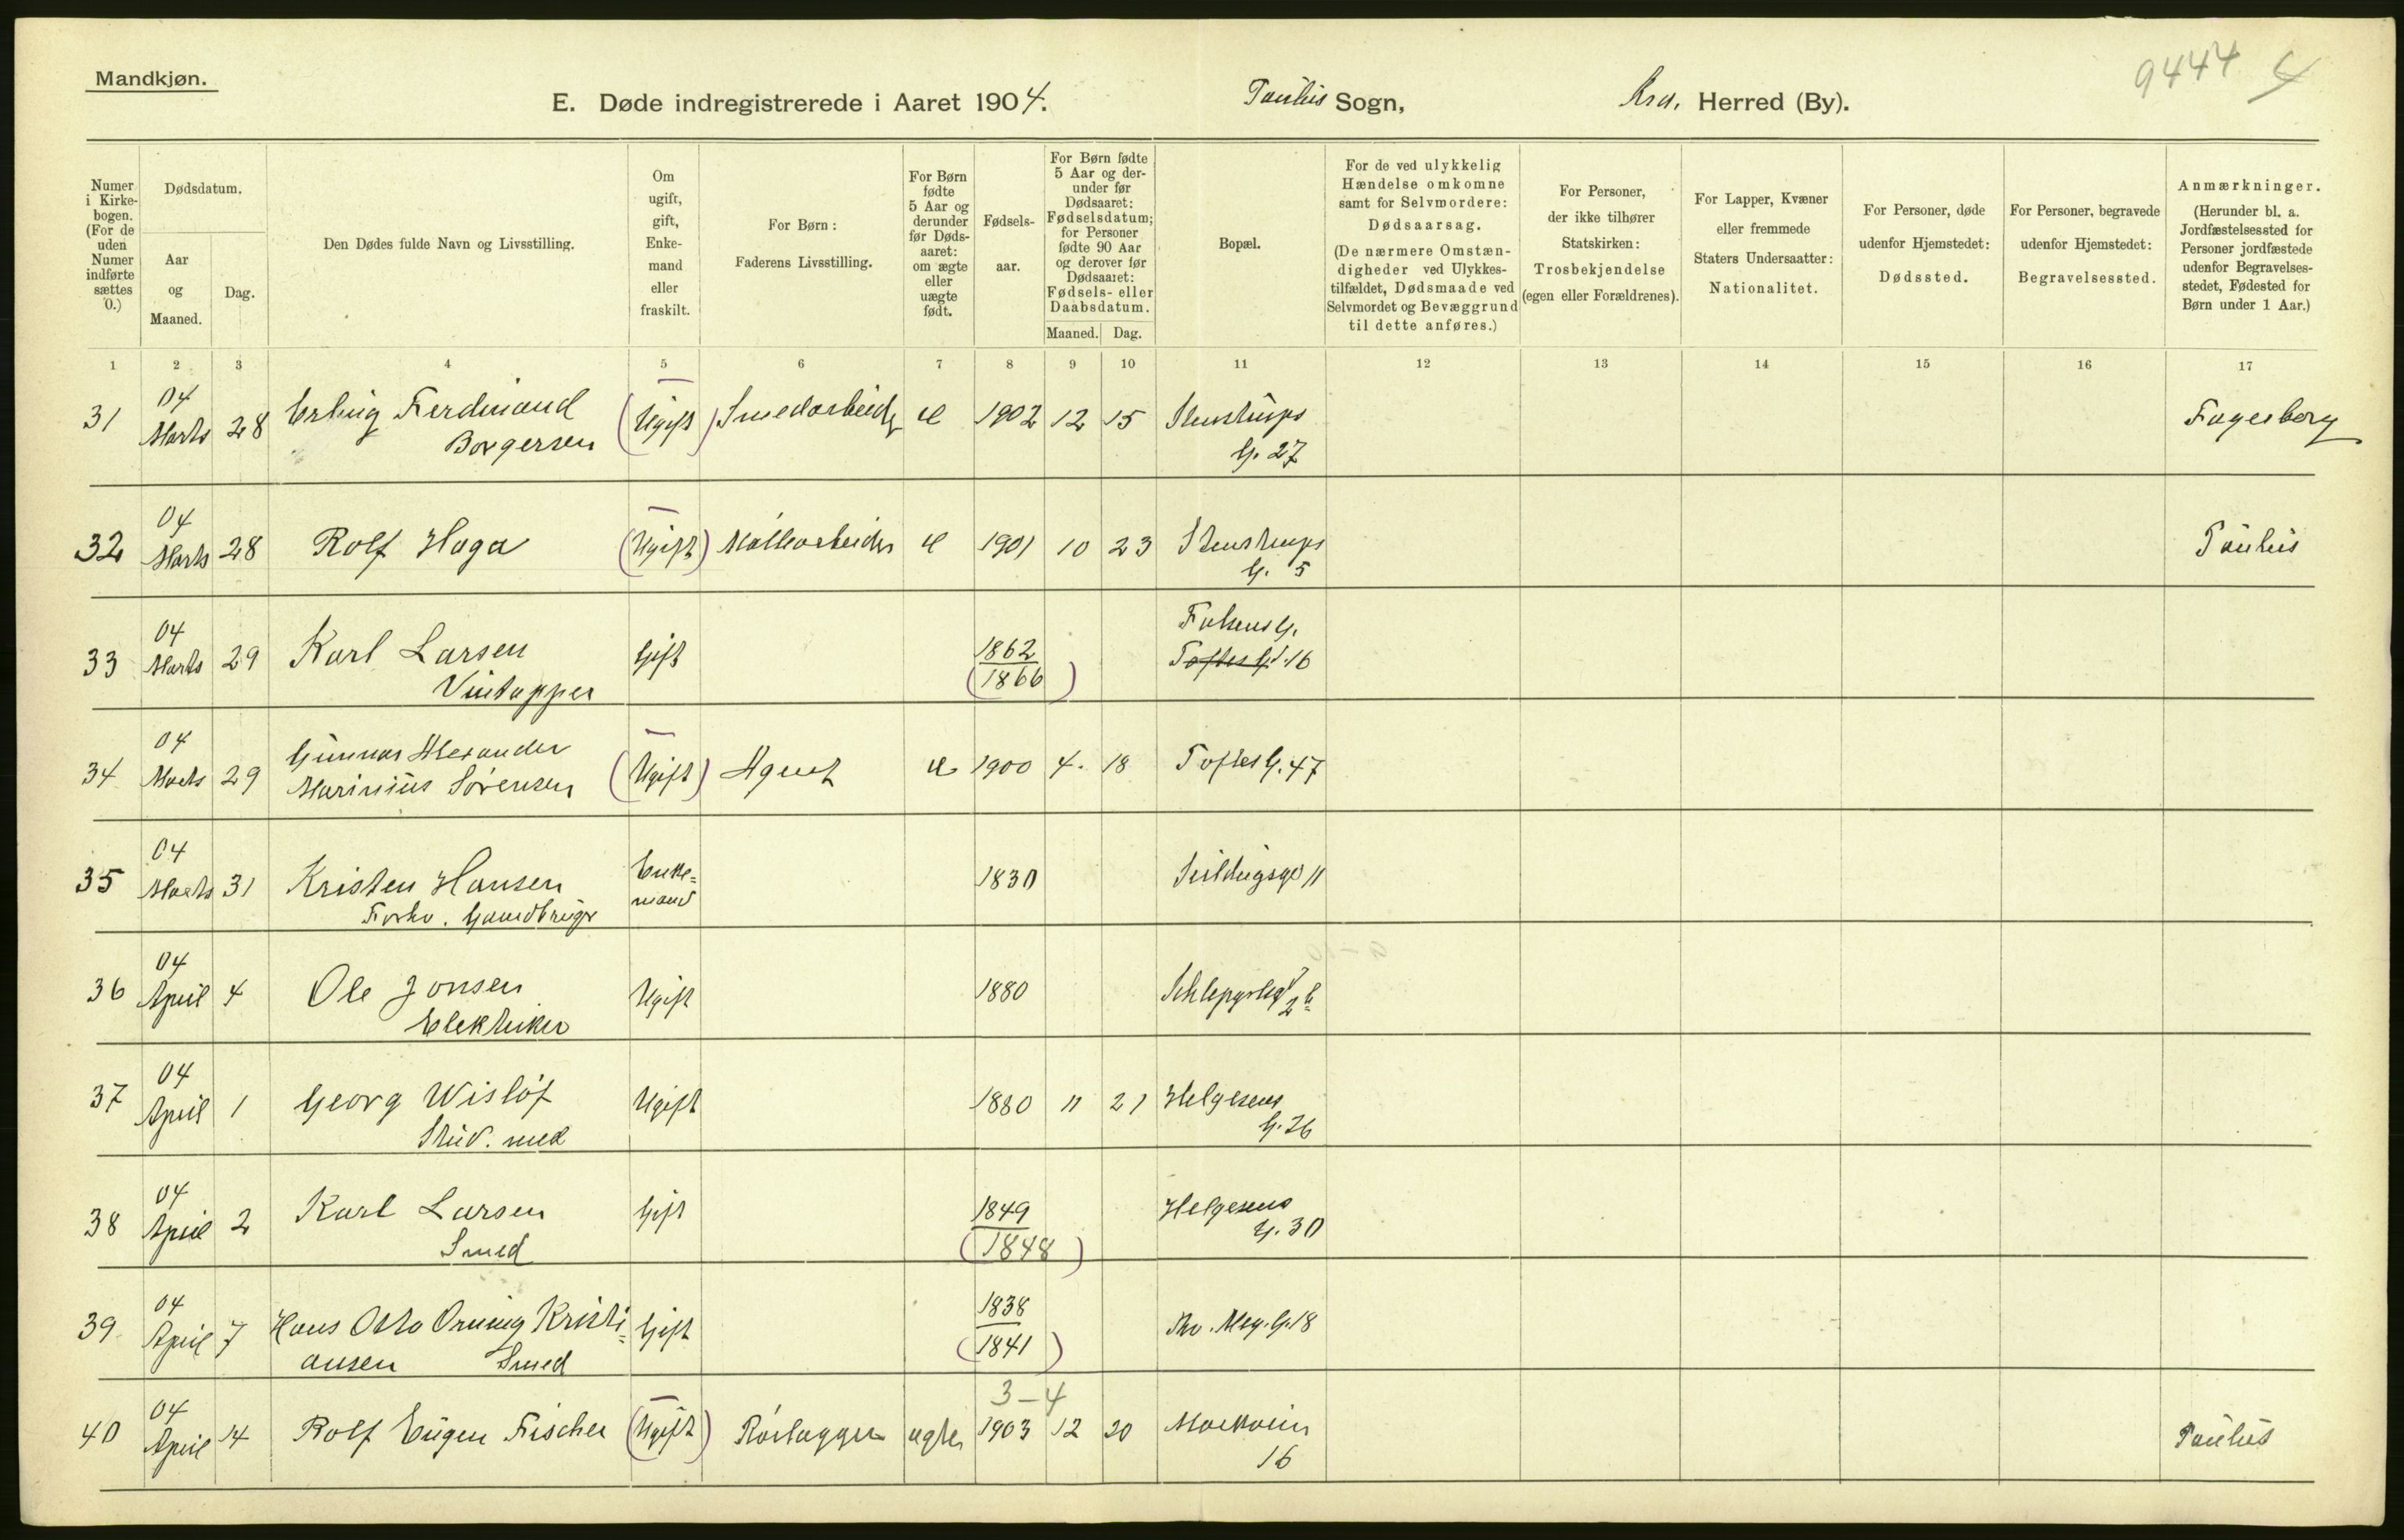 Mandkjøn.
9444 4
E. Døde indregistrerede i Aaret 1904. Paulus Sogn, Kra. Herred (By).
Numer i Kirkebogen. (For de uden Numer indførte sættes 0.)
Dødsdatum.
Aar og Maaned.
Dag.
Den Dødes fulde Navn og Livsstilling.
Om ugift, gift, Enkemand eller fraskilt.
For Børn: Faderens Livsstilling.
For Børn fødte 5 Aar og derunder før Dødsaaret: om ægte eller uægte født.
Fødselsaar.
For Børn fødte 5 Aar og derunder før Dødsaaret: Fødselsdatum; for Personer fødte 90 Aar og derover før Dødsaaret: Fødsels- eller Daabsdatum.
Maaned. Dag.
Bopæl.
For de ved ulykkelig Hændelse omkomne samt for Selvmordere: Dødsaarsag. (De nærmere Omstændigheder ved Ulykkestilfældet, Dødsmaade ved Selvmordet og Bevæggrund til dette anføres.)
For Personer, der ikke tilhører Statskirken: Trosbekjendelse (egen eller Forældrenes).
For Lapper, Kvæner eller fremmede Staters Undersaatter: Nationalitet.
For Personer, døde udenfor Hjemstedet: Dødssted.
For Personer, begravede udenfor Hjemstedet: Begravelsessted.
Anmærkninger. (Herunder bl. a. Jordfæstelsessted for Personer jordfæstede udenfor Begravelsesstedet, Fødested for Børn under 1 Aar.)
1 2 3 4 5 6 7 8 9 10 11 12 13 14 15 16 17
31 04 Marts 28 Erling Ferdinand Borgersen (Ugift) Smedarbeider 1902 12 15 Stenstrups G. 27 Fagerborg
32 04 Marts 28 Rolf Haga (Ugift) Møllearbeider 1901 10 23 Stenstrups G. 5 Paulus
33 04 Marts 29 Karl Larsen Vintapper Gift 1862 (1866) Falsens G. Toftes G. 16
34 04 Marts 29 Gunnar Alexander Marinius Sørensen (Ugift) Agent 1900 4. 18 Toftes G. 47
35 04 Marts 31 Kristen Hansen Forhv. Gaardbruger Enkemand 1830 11
36 04 April 4 Ole Jonsen Elektriker Ugift 1880
37 04 April 1 Georg Wisløf Stud. med Ugift 1880 11 21 Helgesens G. 26
38 04 April 2 Karl Larsen Smed Gift 1849 (1848) Helgesens G. 30
39 04 April 7 Hans Otto Orning Kristiansen Smed Gift 1838 (1841) Thv. Mey. G. 18
3-4
40 04 April 14 Rolf Eugen Fischer (Ugift) Rørlægger ægte 1903 12 20 Markvein 16 Paulus